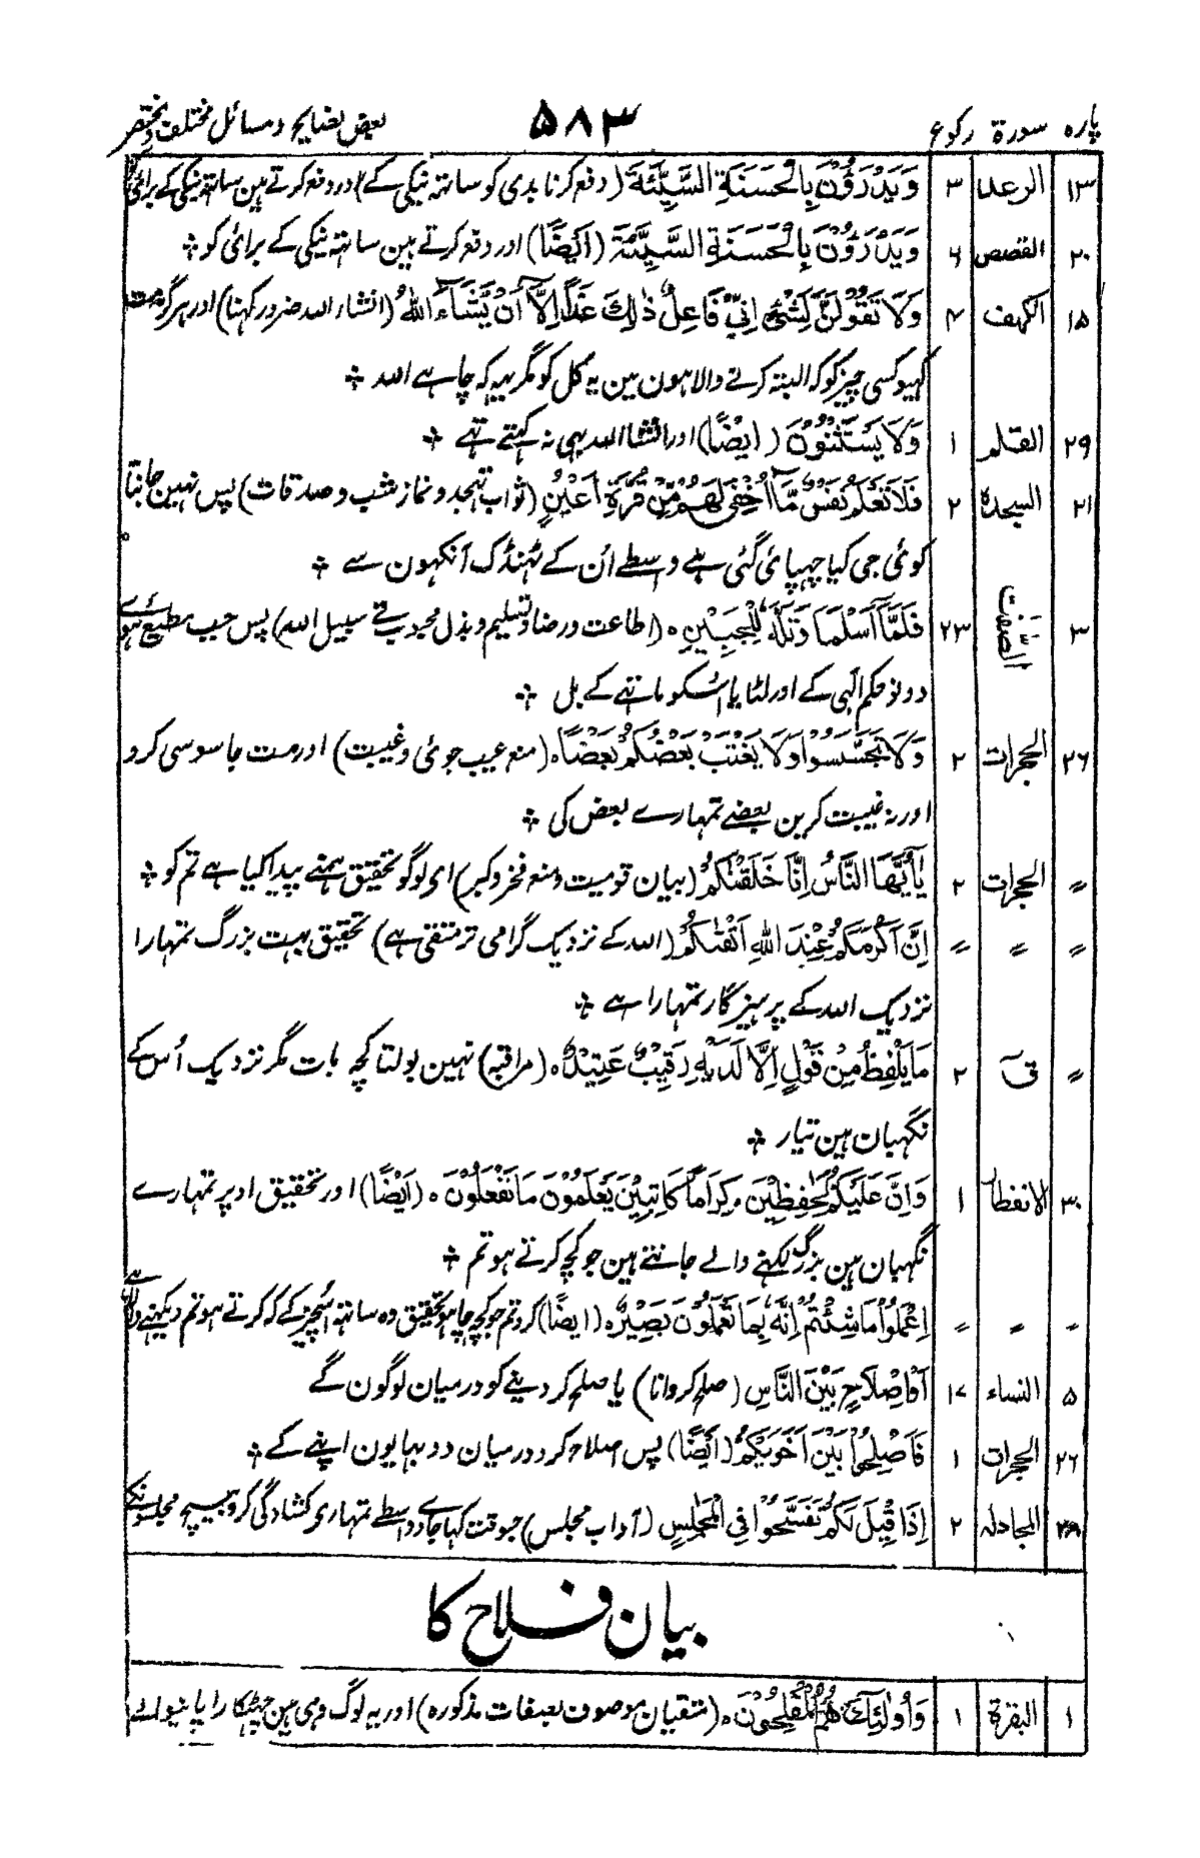 پارہ سورۃ رکوع ۵۸۳ بعض نصایح و مسائل مختلف و مختصر
۱۳ الرعد ۳ وَيَدْرَؤُنَ بِالْحَسَنَةِ السَّيِّئَةَ (دفع کرنا بدی کو ساتھ نیکی کے) اور دفع کرتے ہین ساتھ نیکی کے برائی
۲۰ القصص ۶ وَيَدْرَؤُنَ بِالْحَسَنَةِ السَّيِّئَةَ (اَيضًا) اور دفع کرتے ہین ساتھ نیکی کے برائی کو ؞
۱۵ الکہف ۴ وَلَا تَقُوْلَنَّ لِشَیْءٍ اِنِّیْ فَاعِلٌ ذٰلِكَ غَدًا اِلَّا اَنْ يَّشَاءَ اللهُ (انشاء اللہ ضرور کہنا) اور ہرگز مت
کہیو کسی چیز کو کہ البتہ کرنے والا ہون مین یہ کل کو مگر یہہ کہ چاہے اللہ ؞
۲۹ القلم ۱ وَلَا يَسْتَثْنُوْنَ (ايضًا) اور انشا اللہ بہی نہ کہتے تہے ؞
۲۱ السجدۃ ۲ فَلَا تَعْلَمُ نَفْسٌ مَّا اُخْفِیَ لَهُمْ مِّنْ قُرَّةِ اَعْيُنٍ (ثواب تہجد و نماز شب و صدقات) پس نہین جانتا
کوئی جی کیا چہپائی گئی ہے واسطے اُن کے ٹہنڈک آنکہون سے ؞
۳ الصّٰفّٰت ۲۳ فَلَمَّا اَسْلَمَا وَتَلَّهٗ لِلْجَبِيْنِ ہ (اطاعت و رضا و تسلیم و بذل محبوب فے سبیل اللہ) پس جب مطیع ہوئے
دونو حکم الٰہی کے اور لٹایا اُسکو ماتہے کے بل ؞
۲۶ الحجرات ۲ وَلَا تَجَسَّسُوْا وَلَا يَغْتَبْ بَعْضُكُمْ بَعْضًا ہ (منع عیب جوئی و غیبت) اور مت جاسوسی کرو
اور نہ غیبت کرین بعضے تمہارے بعض کی ؞
〃 الحجرات ۲ يٰاَيُّهَا النَّاسُ اِنَّا خَلَقْنٰكُمْ (بیان قومیت و منع فخر و کبر) ای لوگو تحقیق ہمنے پیدا کیا ہے تم کو ؞
〃 〃 〃 اِنَّ اَكْرَمَكُمْ عِنْدَ اللهِ اَتْقٰىكُمْ (اللہ کے نزدیک گرامی تر متقی ہے) تحقیق بہت بزرگ تمہارا
نزدیک اللہ کے پرہیزگار تمہارا ہے ؞
〃 قٓ ۲ مَا يَلْفِظُ مِنْ قَوْلٍ اِلَّا لَدَيْهِ رَقِيْبٌ عَتِيْدٌ ہ (مراقبہ) نہین بولتا کچہ بات مگر نزدیک اُس کے
نگہبان ہین تیار ؞
۳۰ الانفطار ۱ وَاِنَّ عَلَيْكُمْ لَحٰفِظِيْنَ ہ كِرَامًا كَاتِبِيْنَ يَعْلَمُوْنَ مَا تَفْعَلُوْنَ ہ (اَيْضًا) اور تحقیق اوپر تمہارے
نگہبان ہین بزرگ لکہنے والے جانتے ہین جو کچہ کرتے ہو تم ؞
〃 〃 〃 اِعْمَلُوْا مَا شِئْتُمْ اِنَّهٗ بِمَا تَعْمَلُوْنَ بَصِيْرٌ ہ (ایضًا) کرو تم جو کچہ چاہو تحقیق وہ ساتھ اُسچیز کے کہ کرتے ہو تم دیکہنے والا ہے
۵ النساء ۱۷ اَوْ اِصْلَاحٍ بَيْنَ النَّاسِ (صلح کروانا) یا صلح کر دینے کو درمیان لوگون کے
۲۶ الحجرات ۱ فَاَصْلِحُوْا بَيْنَ اَخَوَيْكُمْ (اَيْضًا) پس اصلاح کردو درمیان دو بہایون اپنے کے ؞
۲۸ المجادلہ ۲ اِذَا قِيْلَ لَكُمْ تَفَسَّحُوْا فِی الْمَجٰلِسِ (آداب مجلس) جسوقت کہا جاوے واسطے تمہاری کشادگی کرو بیچ مجلسونکے
بیان فلاح کا
۱ البقرۃ ۱ وَاُولٰئِكَ هُمُ الْمُفْلِحُوْنَ ہ (متقیان موصوف بصفات مذکورہ) اور یہ لوگ وہی ہین چہٹکارا پانیوالے